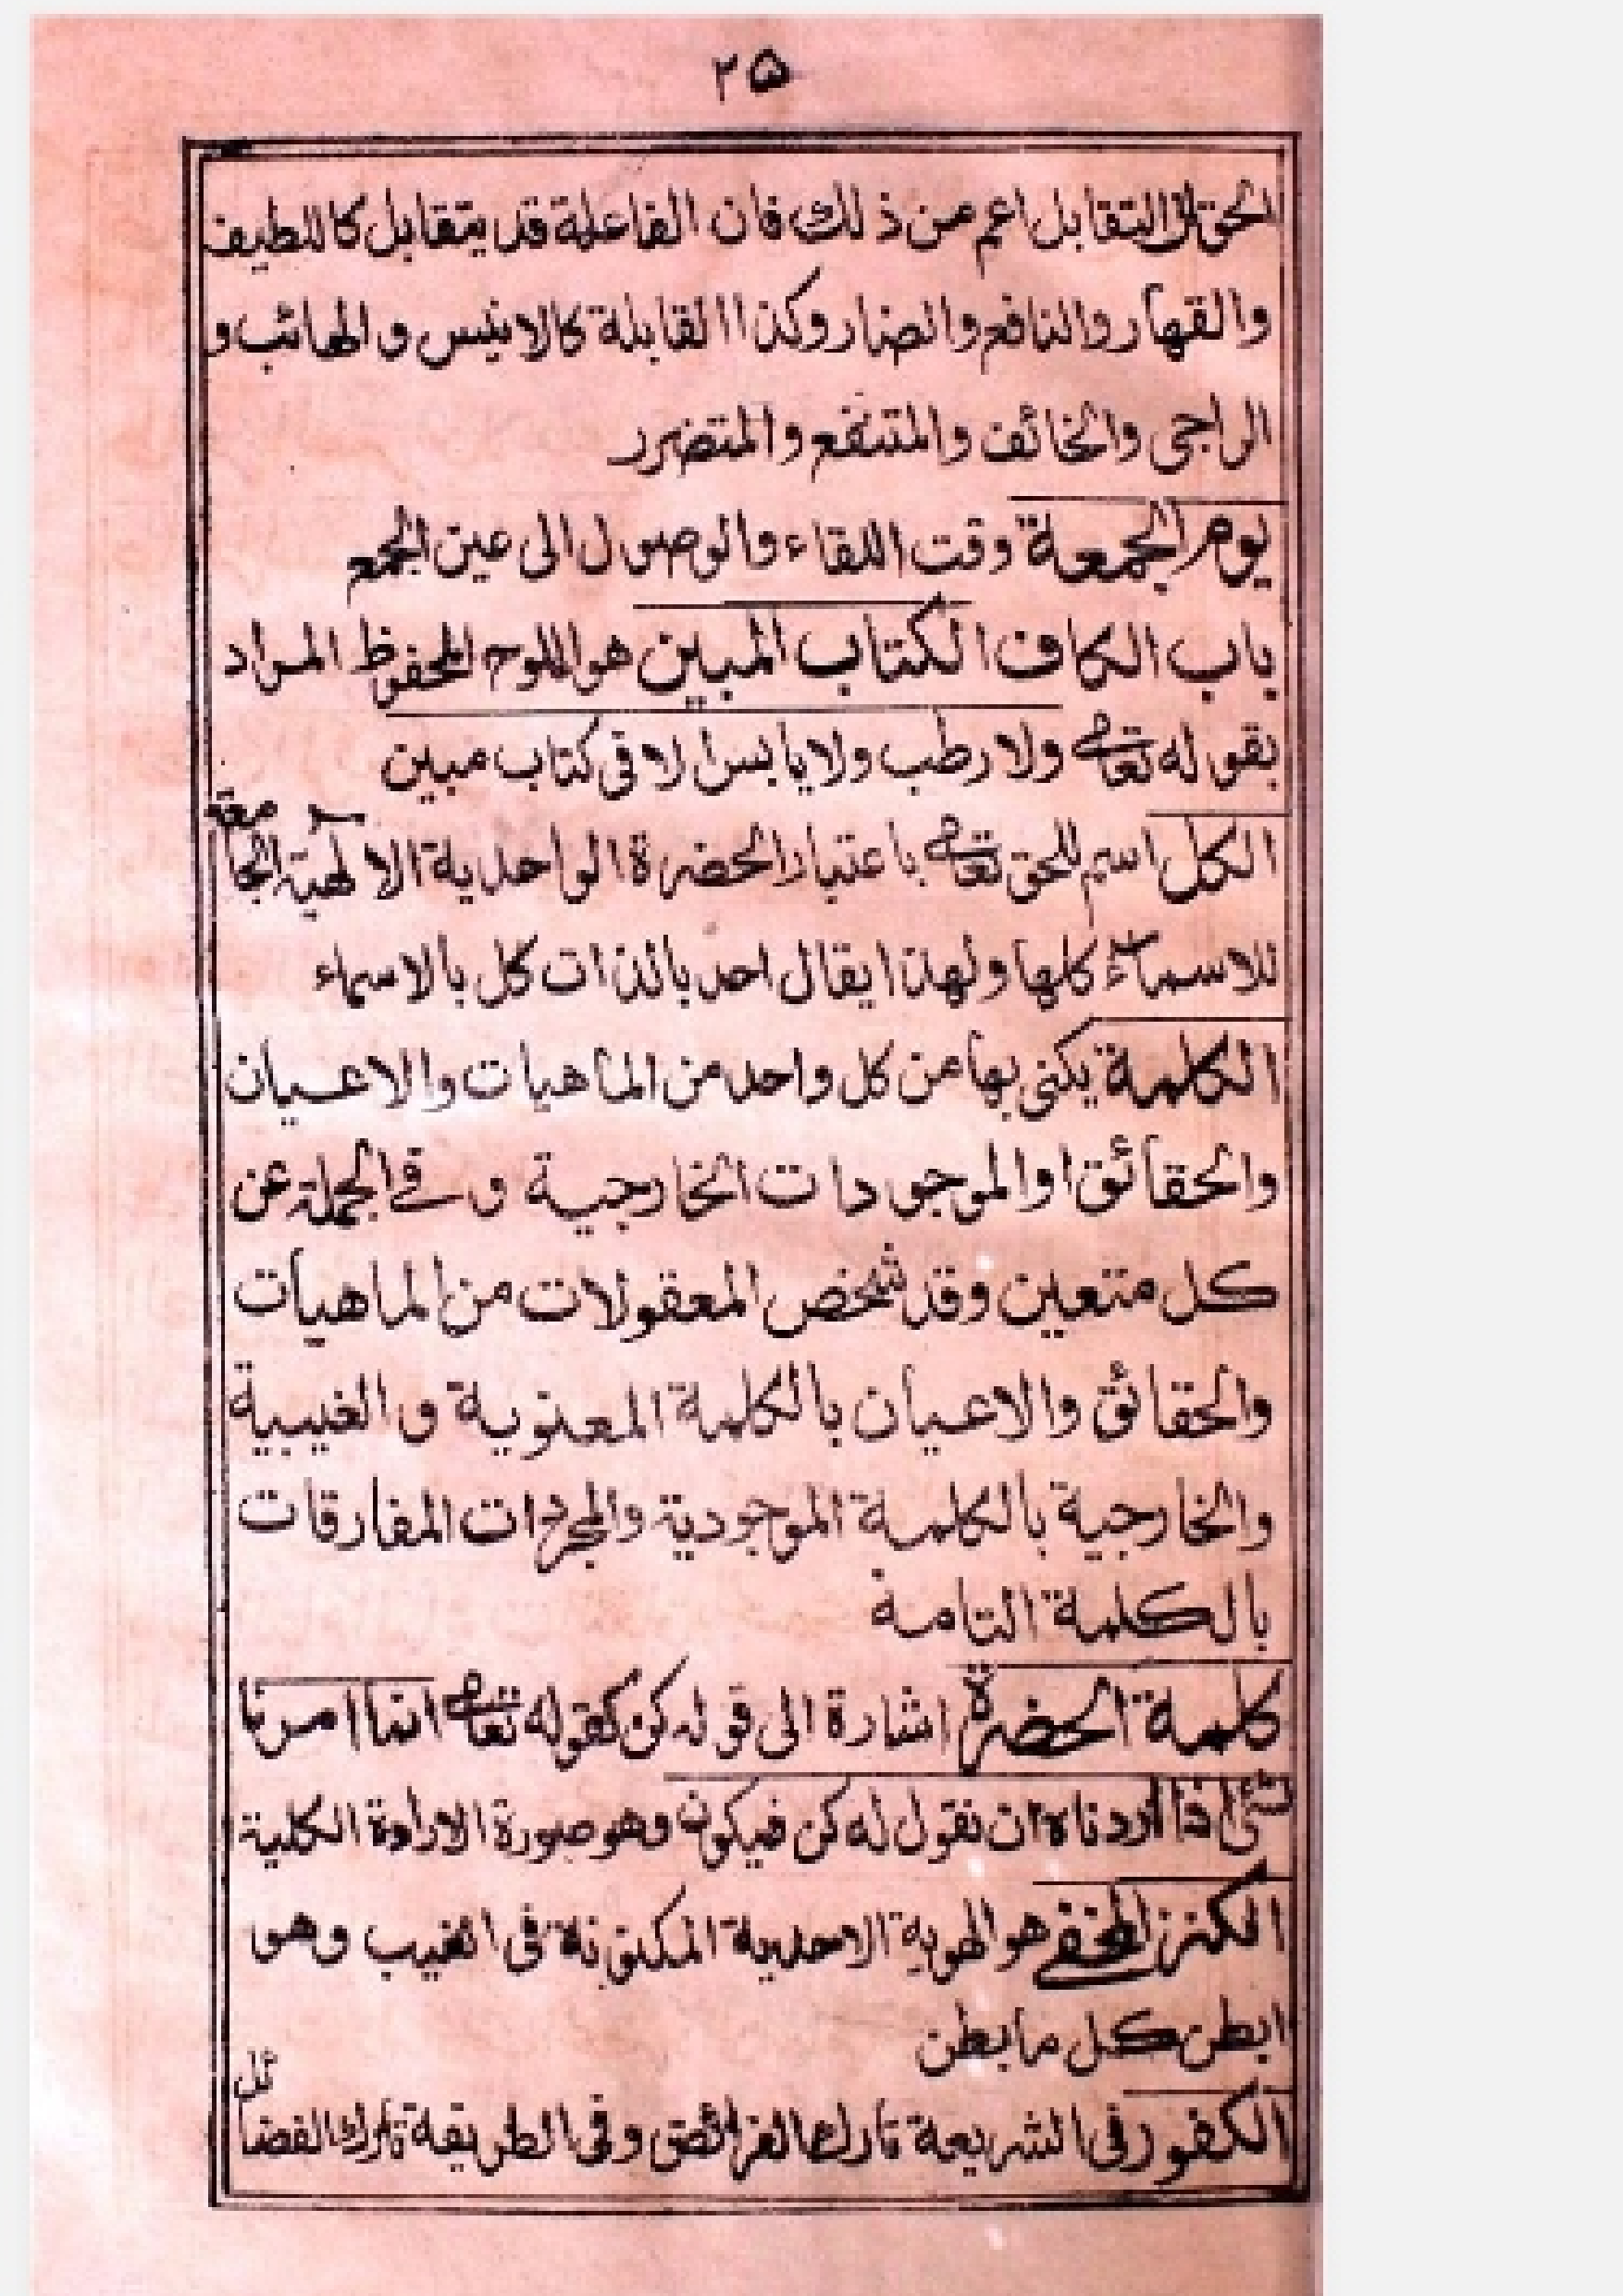 ٢٥
الحق لان التقابل اعم من ذلك فان الفاعلة قد يتقابل كاللطيف
والقهار والنافع والضار وكذا القابلة كالانيس والهائب و
الراجى والخائف والمتنفع والمتضرر
يوم الجمعة وقت اللقاء والوصول الى عين الجمع
باب الكاف الكتاب المبين هو اللوح المحفوظ المراد
بقوله تعالى ولا رطب ولا يابس الا فى كتاب مبين
الكل اسم للحق تعالى باعتبار الحضرة الواحدية الالهية الجامعة
للاسماء كلها ولهذا يقال احد بالذات كل بالاسماء
الكلمة يكنى بها من كل واحد من الماهيات والاعيان
والحقائق او الموجودات الخارجية و فى الجملة عن
كل متعين وقد شخص المعقولات من الماهيات
والحقائق والاعيان بالكلمة المعنوية و الغيبية
والخارجية بالكلمة الموجودية والمجردات المفارقات
بالكلمة التامة
كلمة الحضرة اشارة الى قوله كن كقوله تعالى انما امرنا
شئ اذا اردناه ان نقول له كن فيكون وهو صورة الارادة الكلية
الكنز المخفى هو الهوية الاحدية المكنونة فى الغيب وهو
ابطن كل ما بطن
الكفور فى الشريعة تارك الفرائض وفى الطريقة تارك الفضائل